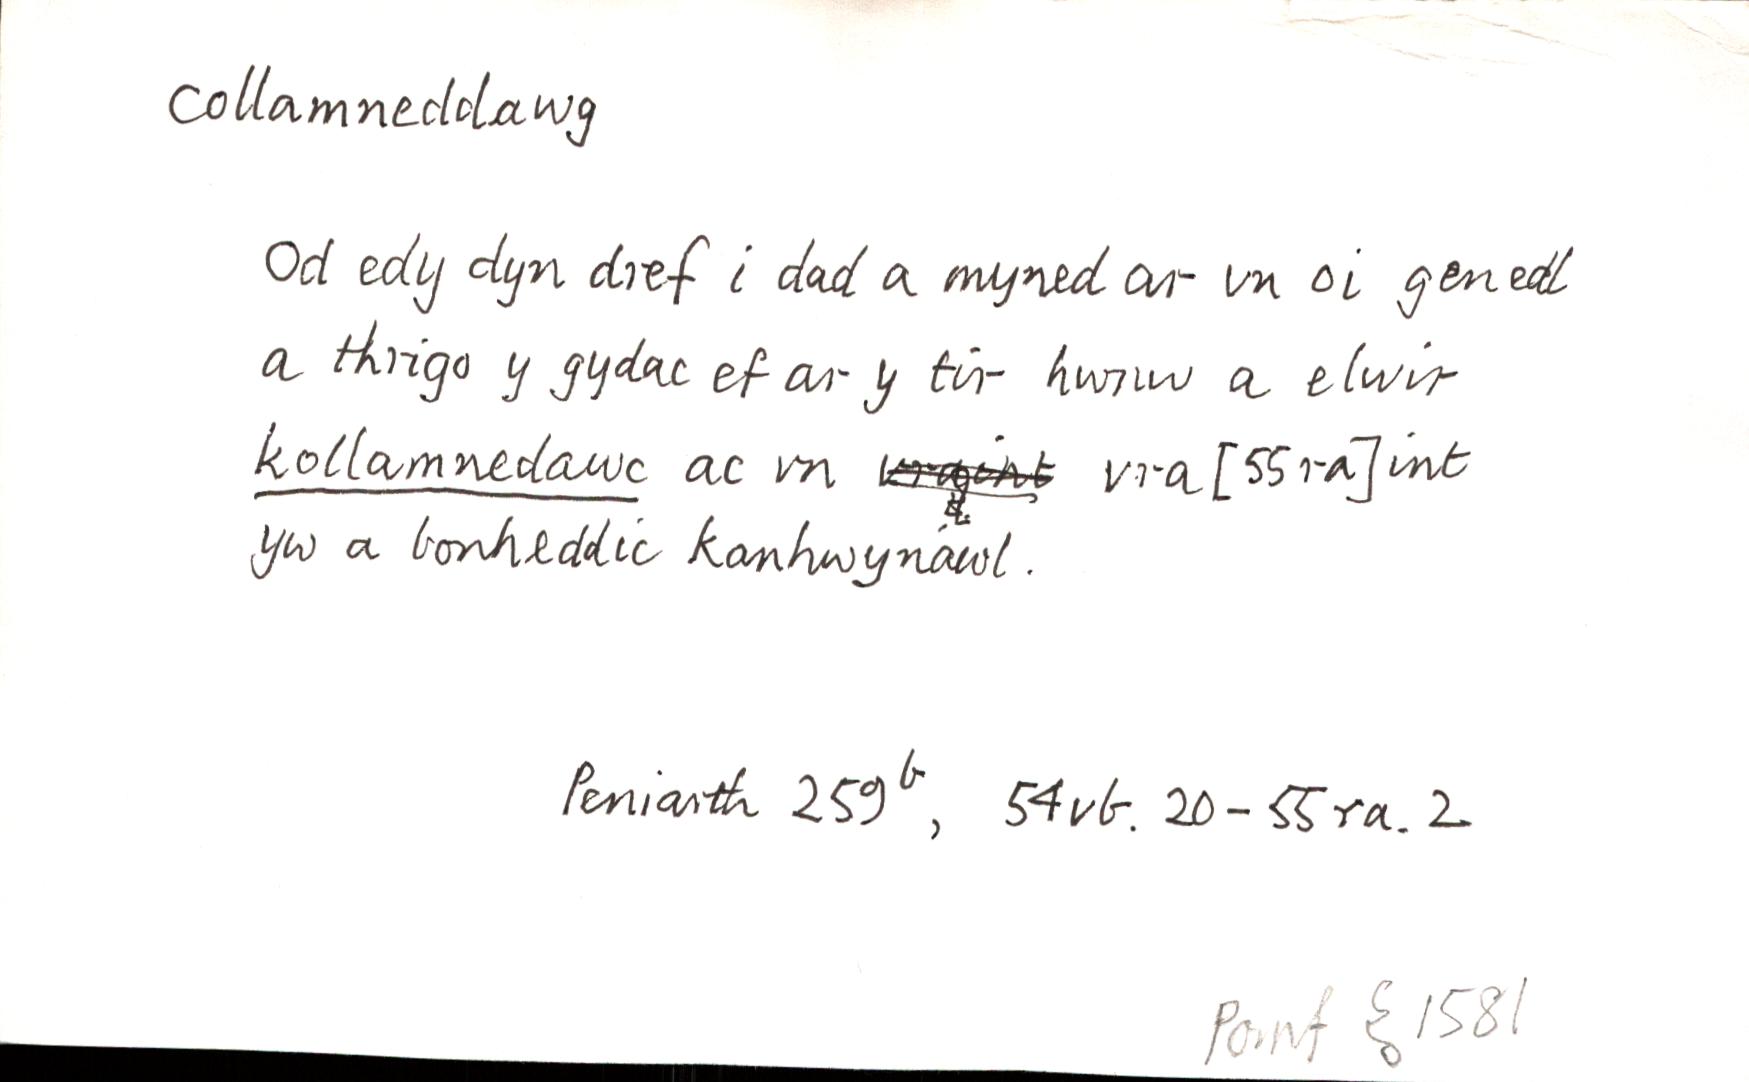 Collamneddawg
Od edy dyn dref i dad a myned ar vn oi genedl
a thrigo y gydac ef ar y tir hwnw a elwir
kollamnedawc ac vn vra[55ra]int
yw a bonheddic kanhwynawl.
Peniarth 259b, 54vb. 20-55ra. 2
Pomf § 1581